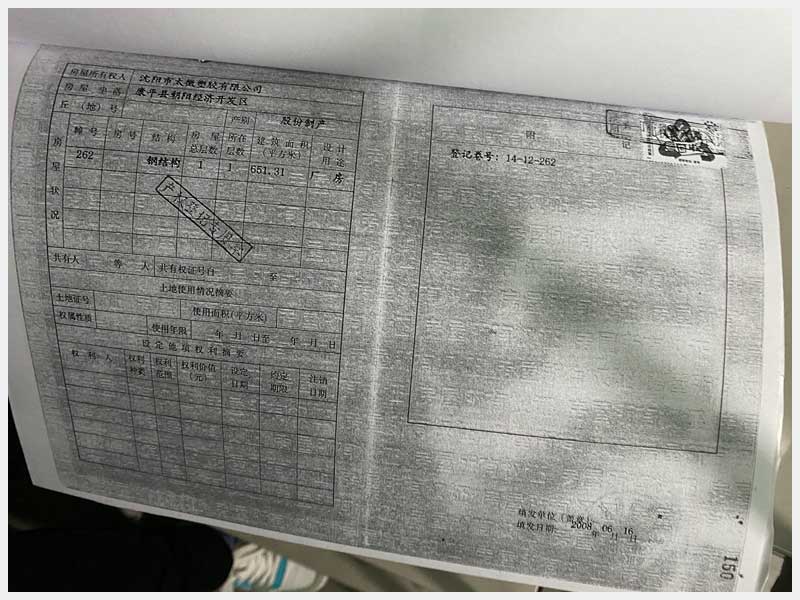 房屋所有权人 沈阳市大微塑胶有限公司
房屋坐落 康平县朝阳经济开发区
丘（地）号 产别 股份制产
房屋状况
幢号 房号 结构 房屋总层数 所在层数 建筑面积（平方米） 设计用途
262 钢结构 1 1 651.31 厂房
共有人 等 人 共有权证号自 至
土地使用情况摘要
土地证号 使用面积(平方米)
权属性质 使用年限 年 月 日至 年 月 日
设定他项权利摘要
权利人 权利种类 权利范围 权利价值（元） 设定日期 约定期限 注销日期
附 记
登记卷号：14-12-262
填发单位（盖章）
填发日期：2008年06月16日
150